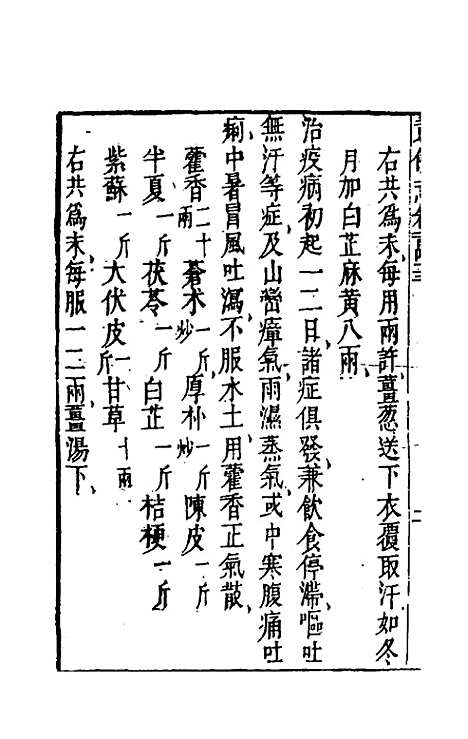 右共爲末每用兩許薑葱送下衣覆取汗如冬
月加白芷麻黃八兩
治疫病初起一二日諸症俱發兼飲食停滯嘔吐
無汗等症及山巒瘴氣雨濕蒸氣或中寒腹痛吐
痢中暑冒風吐瀉不服水土用藿香正氣散
藿香二十兩 蒼术炒一斤 厚朴炒一斤 陳皮一斤
半夏一斤 茯苓一斤 白芷一斤 桔梗一斤
紫蘇一斤 大伏皮一斤 甘草十兩
右共爲末每服一二兩薑湯下